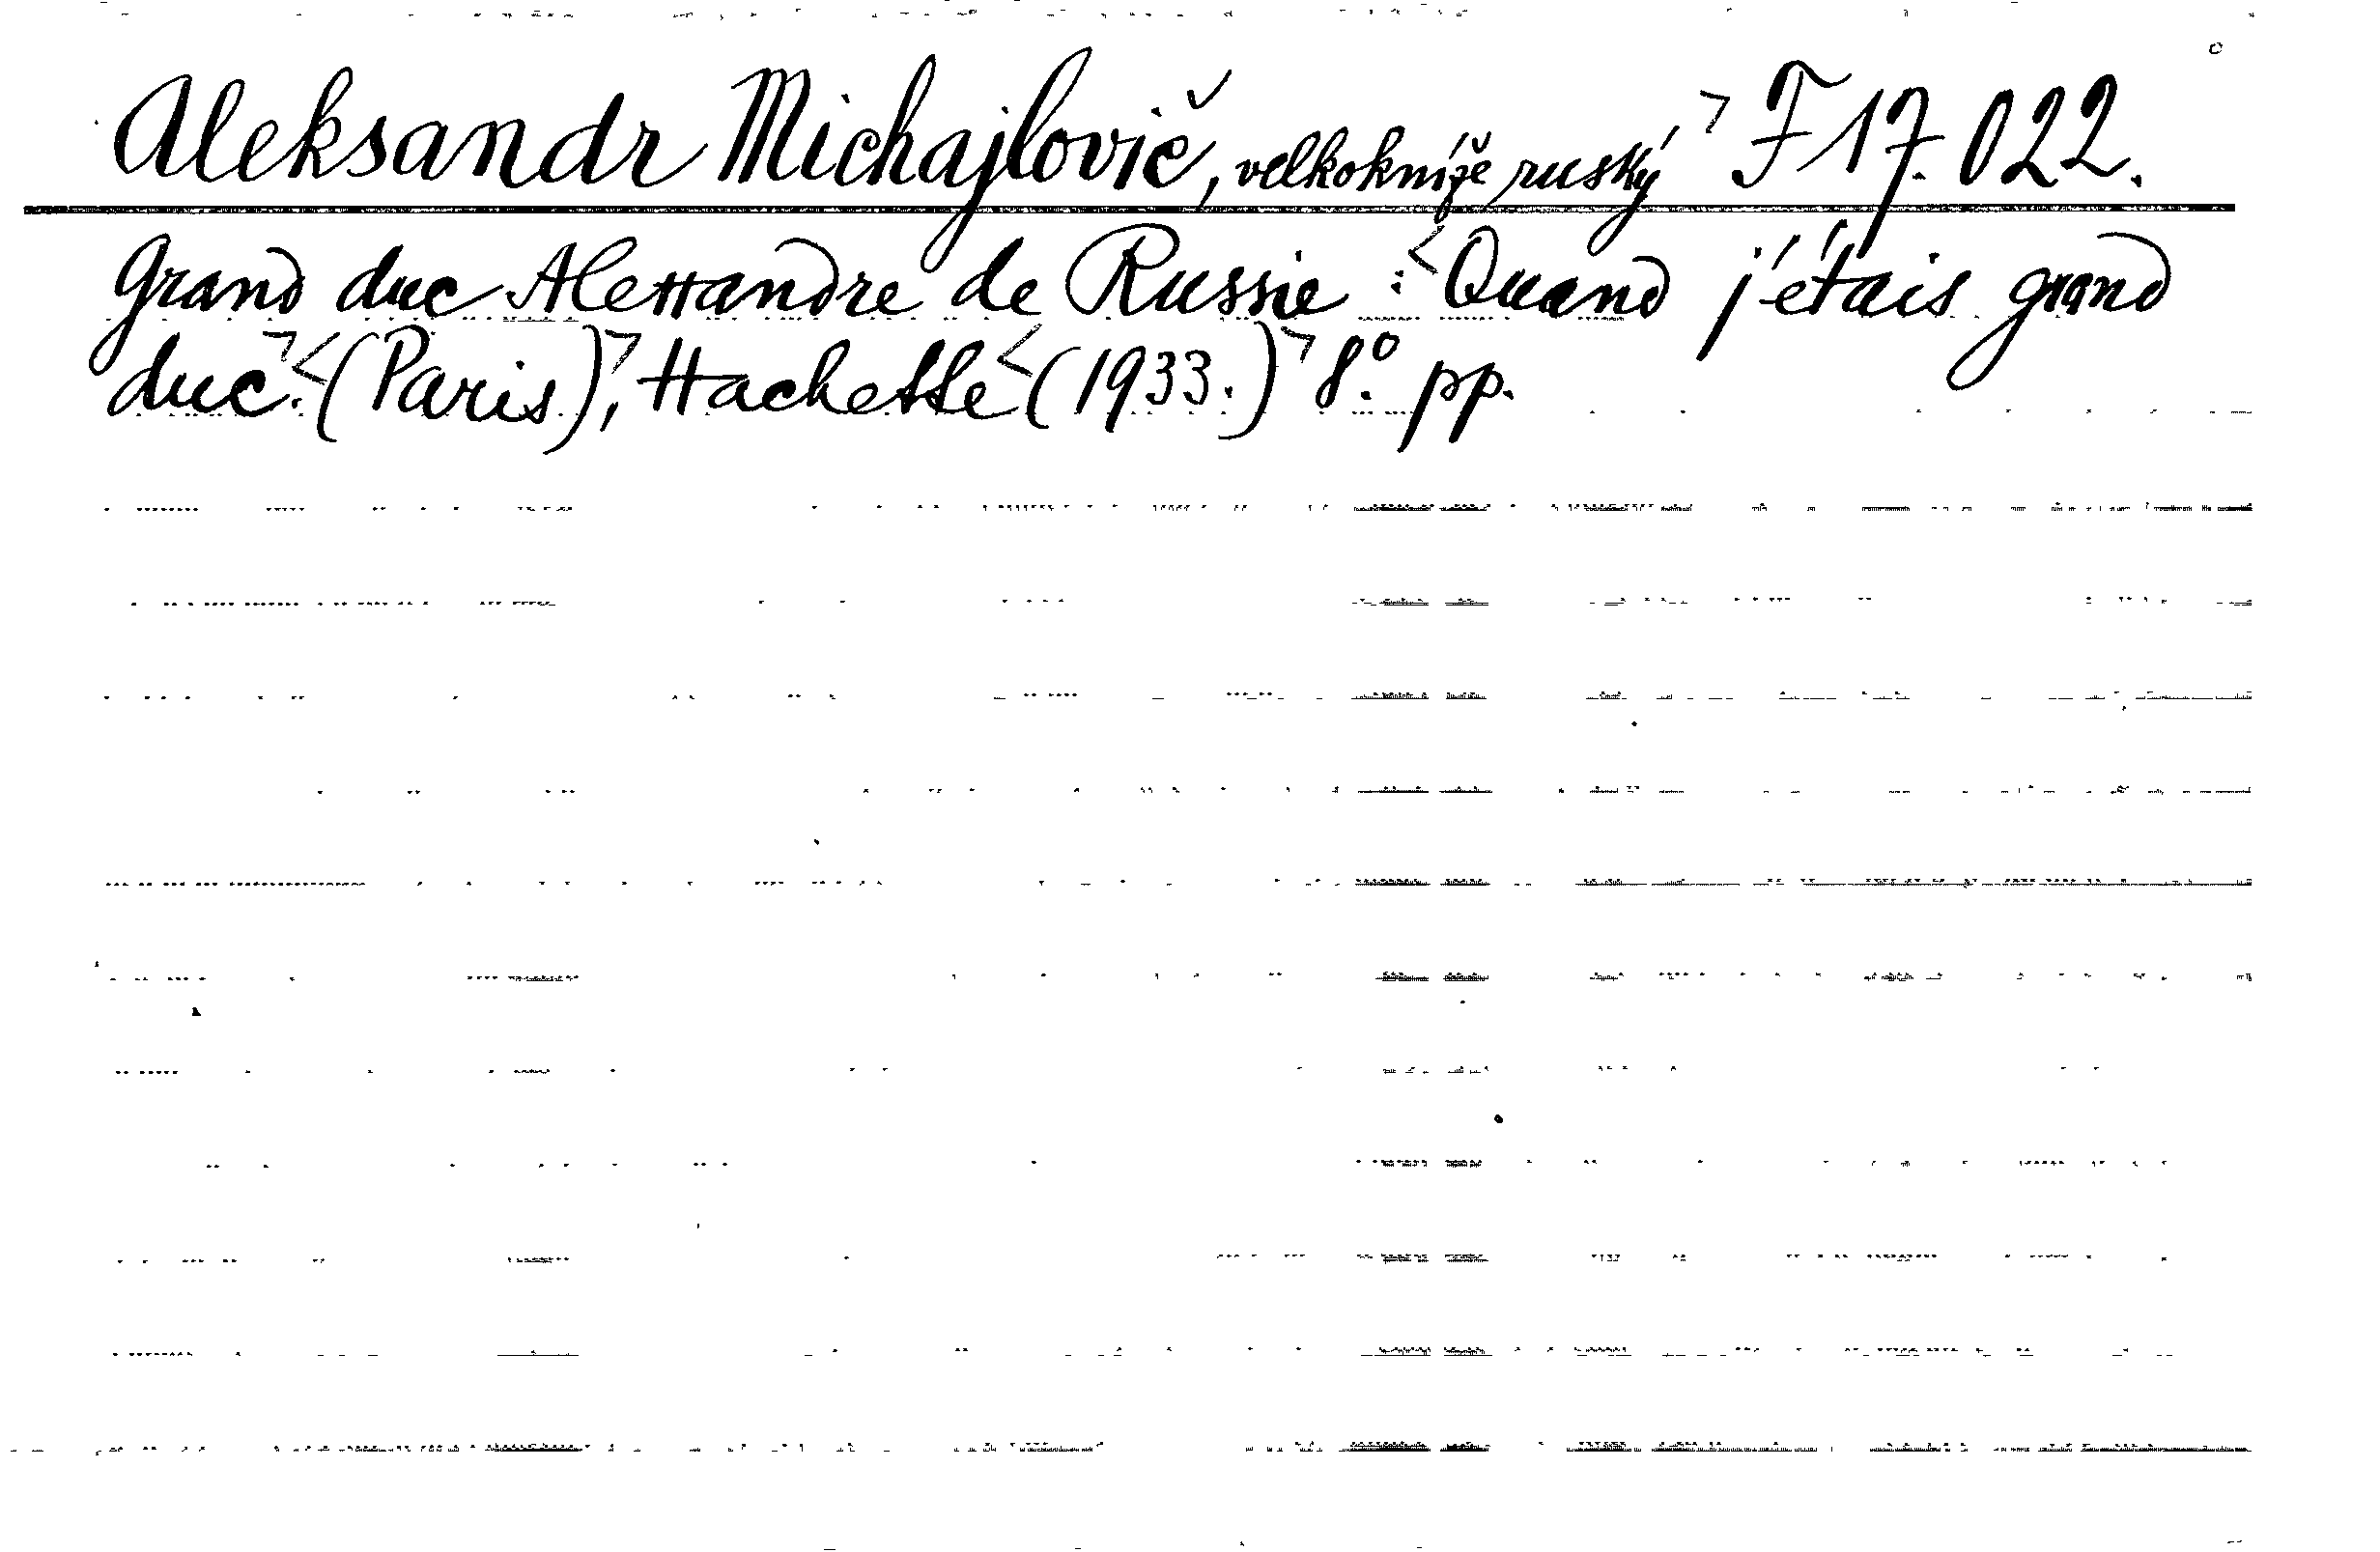 Aleksandr Michajlovič, velkokníže ruský F 17.022.
Grand duc Alexandre de Russie : Quand j'étais grand
duc. (Paris), Hachette (1933.) 8.° pp.